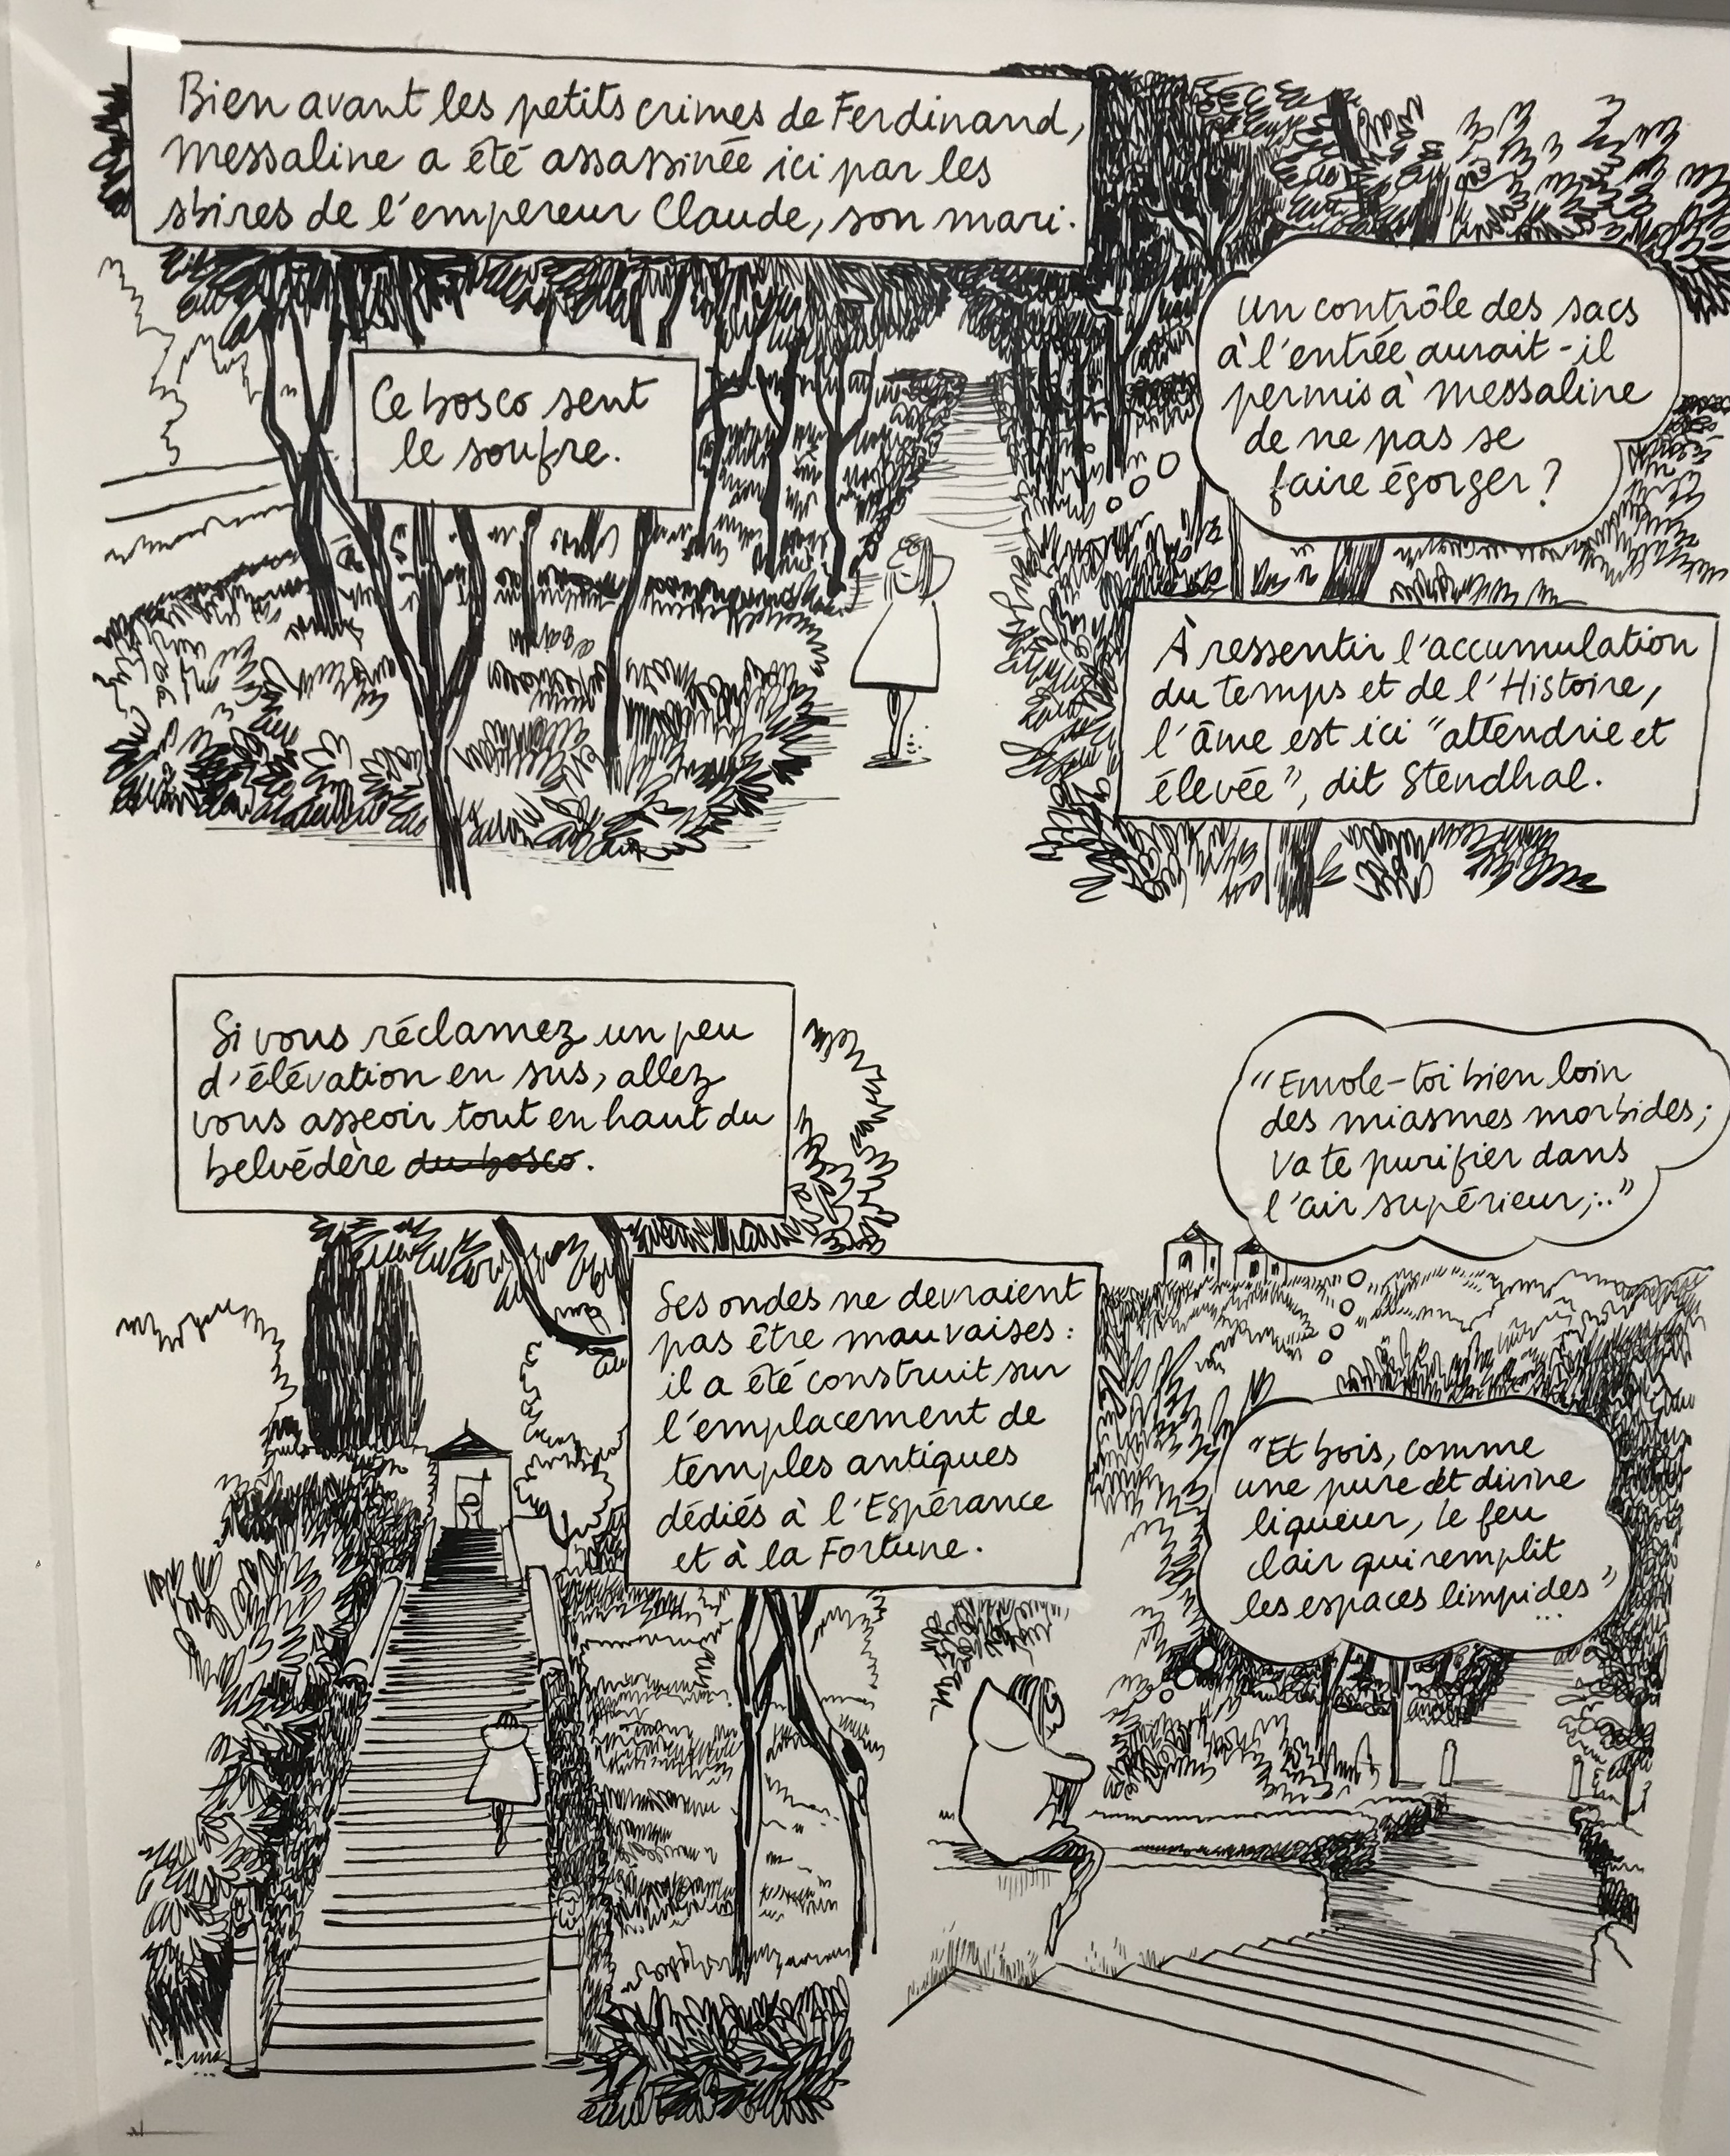 Bien avant les petits crimes de Ferdinand,
Messaline a été assassinée ici par les
sbires de l'empereur Claude, son mari.
Ce bosco sent
le soufre.
Un contrôle des sacs
à l'entrée aurait-il
permis à Messaline
de ne pas se
faire égorger ?
À ressentir l'accumulation
du temps et de l'Histoire,
l'âme est ici "attendrie et
élevée", dit Stendhal.
Si vous réclamez un peu
d'élévation en sus, allez
vous asseoir tout en haut du
belvédère du bosco.
Ses ondes ne devraient
pas être mauvaises :
il a été construit sur
l'emplacement de
temples antiques
dédiés à l'Espérance
et à la Fortune.
"Envole-toi bien loin
des miasmes morbides ;
va te purifier dans
l'air supérieur ;.."
"Et bois, comme
une pure et divine
liqueur, le feu
clair qui remplit
les espaces limpides"
...